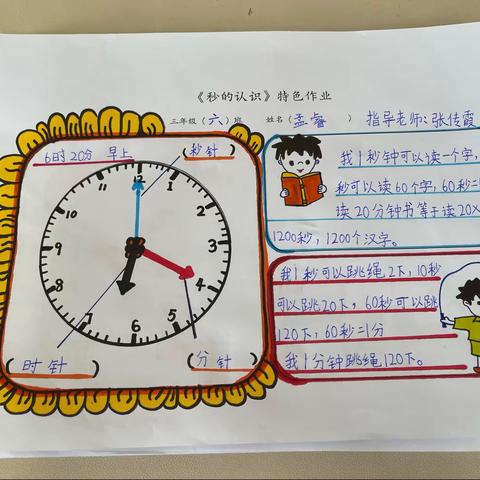 《秒的认识》特色作业
三年级（六）班 姓名（孟睿 ） 指导老师：张传霞
6时20分 早上
（秒针）
12
1
2
3
4
5
6
7
8
9
10
11
（时针）
（分针）
我1秒钟可以读一个字，
秒可以读60个字，60秒=
读20分钟书等于读20×
1200秒，1200个汉字。
我1秒可以跳绳2下，10秒
可以跳20下，60秒可以跳
120下，60秒=1分
我1分钟跳绳120下。